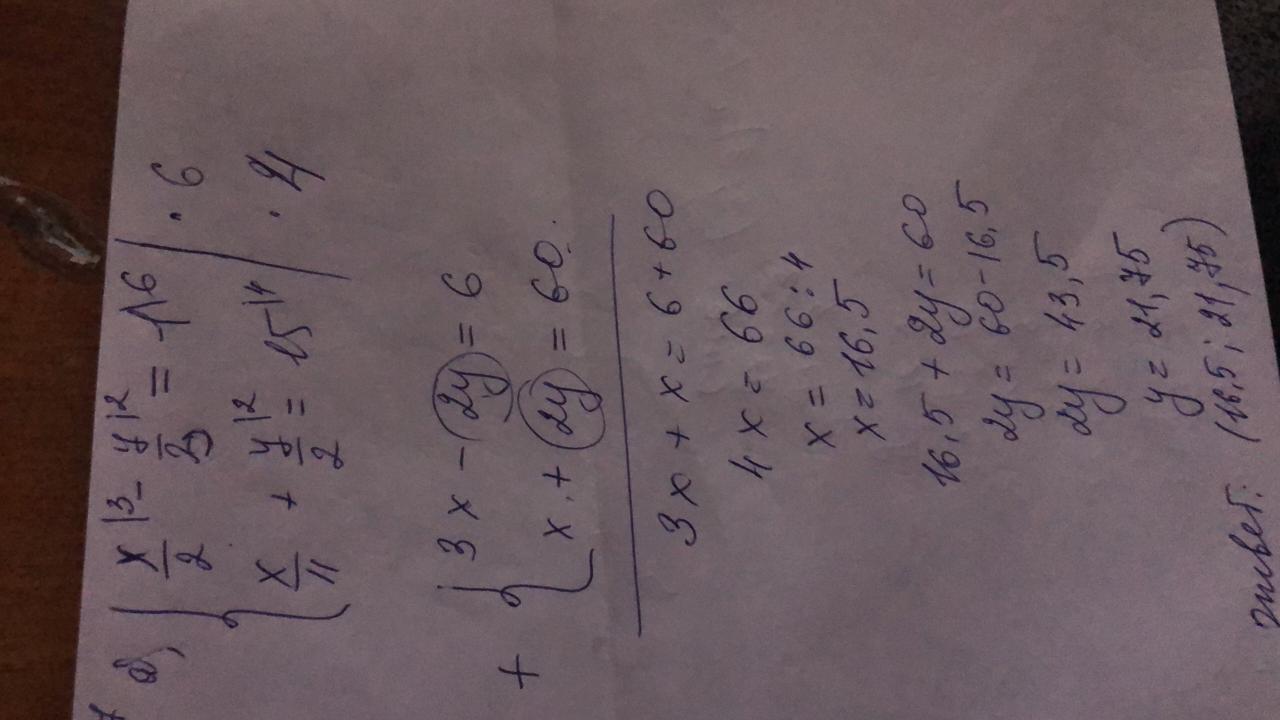 a) { x/2 |3 - y/3 |2 = 1 |6 | · 6
x/4 + y/2 |2 = 15 |4 | · 4
+ { 3x - 2y = 6
x + 2y = 60.
3x + x = 6 + 60
4x = 66
x = 66 : 4
x = 16,5
16,5 + 2y = 60
2y = 60 - 16,5
2y = 43,5
y = 21,75
ответ: (16,5; 21,75)